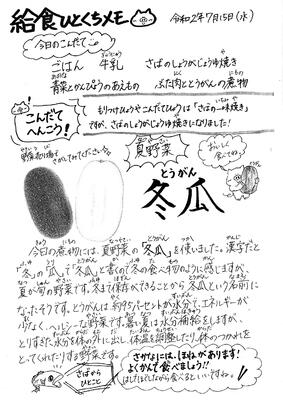 給食ひとくちメモ
令和2年7月15日(水)
今日のこんだて
ごはん 牛乳 さばのしょうがじょうゆ焼き
青菜とかんぴょうのあえもの ぶた肉ととうがんの煮物
こんだてへんこう！
もりつけひょうやこんだてひょうは「さばの一味焼き」
ですが、さばのしょうがじょうゆ焼きになりました！
夏野菜
とうがん
冬瓜
おいしく
食べてね
今日の煮物には、夏野菜の「冬瓜」を使いました。漢字だと
「冬」の「瓜」で「冬瓜」と書くので冬の食べ物のように感じますが、
夏が旬の野菜です。冬まで保存ができることから冬瓜という名前に
なったそうです。とうがんは約95パーセントが水分で、エネルギーが
少なく、ヘルシーな野菜です。暑い夏は水分補給をしますが、
とりすぎた水分を体の外に出し、体温を調整したり、体のつかれを
とってくれたりする野菜です。
さばから
ひとこと
さかなには、ほねがあります！
よくかんで食べましょう!!
はしでほぐしながら食べるといいですね。